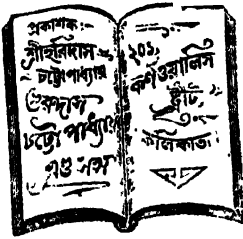 প্রকাশক :—
শ্রীহরিদাস
চট্টোপাধ্যায়
গুরুদাস
চট্টোপাধ্যায়
এণ্ড সন্স
২০১,
কর্ণওয়ালিস
ষ্ট্রীট,
কলিকাতা